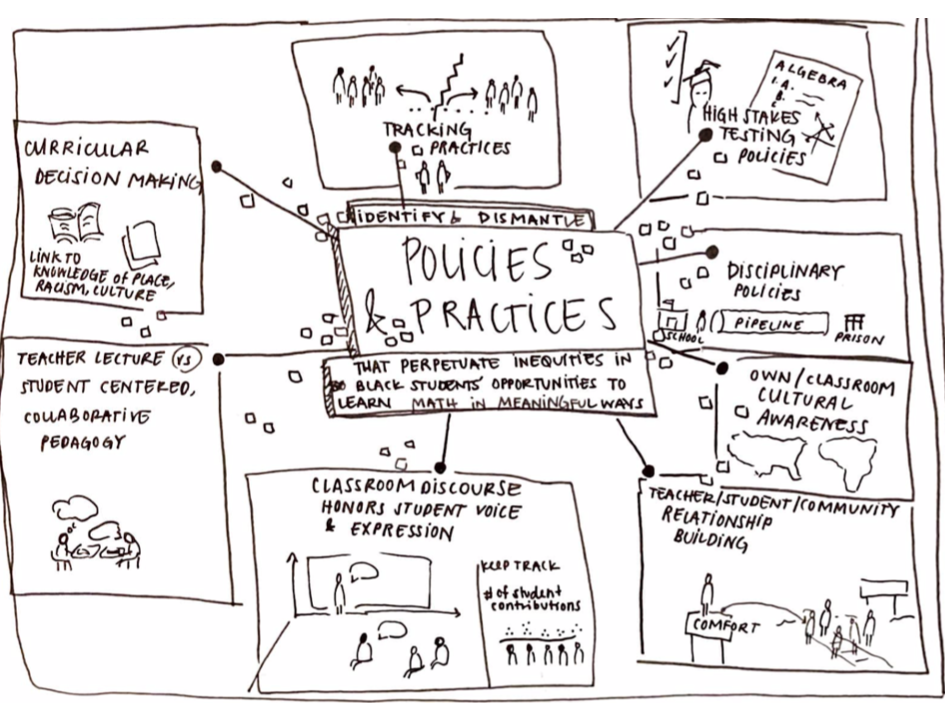 TRACKING
PRACTICES
ALGEBRA
1. A.
B.
HIGH STAKES
TESTING
POLICIES
CURRICULAR
DECISION MAKING
LINK TO
KNOWLEDGE of PLACE,
RACISM, CULTURE
IDENTIFY & DISMANTLE
POLICIES
& PRACTICES
THAT PERPETUATE INEQUITIES IN
BLACK STUDENTS' OPPORTUNITIES TO
LEARN MATH IN MEANINGFUL WAYS
DISCIPLINARY
POLICIES
SCHOOL
PIPELINE
PRISON
TEACHER LECTURE vs
STUDENT CENTERED,
COLLABORATIVE
PEDAGOGY
OWN/CLASSROOM
CULTURAL
AWARENESS
CLASSROOM DISCOURSE
HONORS STUDENT VOICE
& EXPRESSION
KEEP TRACK
# of student
contributions
TEACHER/STUDENT/COMMUNITY
RELATIONSHIP
BUILDING
COMFORT